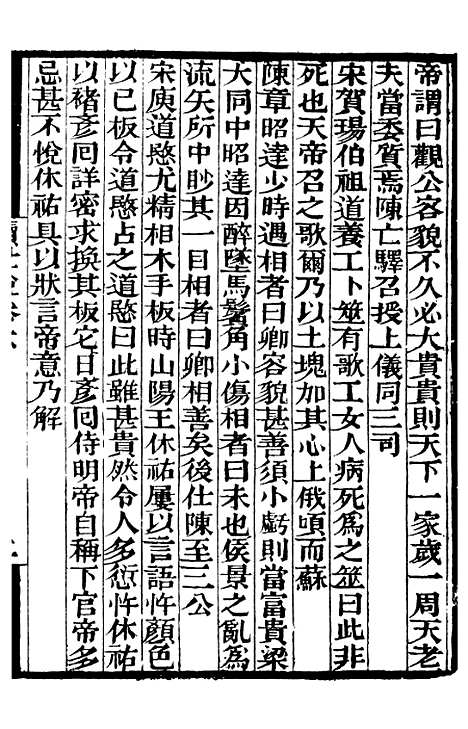 帝謂曰觀公容貌不久必大貴貴則天下一家歲一周天老
夫當委質焉陳亡驛召授上儀同三司
宋賀瑒伯祖道養工卜筮有歌工女人病死為之筮曰此非
死也天帝召之歌爾乃以土塊加其心上俄頃而蘇
陳章昭達少時遇相者曰卿容貌甚善須小虧則當富貴梁
大同中昭達因醉墜馬鬢角小傷相者曰未也侯景之亂為
流矢所中眇其一目相者曰卿相善矣後仕陳至三公
宋庾道愍尤精相木手板時山陽王休祐屢以言語忤顏色
以已板令道愍占之道愍曰此雖甚貴然令人多愆忤休祐
以褚彥回詳密求換其板它日彥回侍明帝自稱下官帝多
忌甚不悅休祐具以狀言帝意乃解